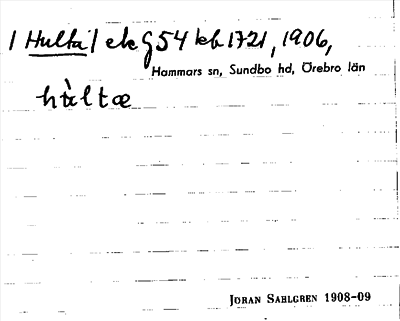 / Hulta / ek G54 kb 1721, 1906,
Hammars sn, Sundbo hd, Örebro län
hùltæ
JÖRAN SAHLGREN 1908-09